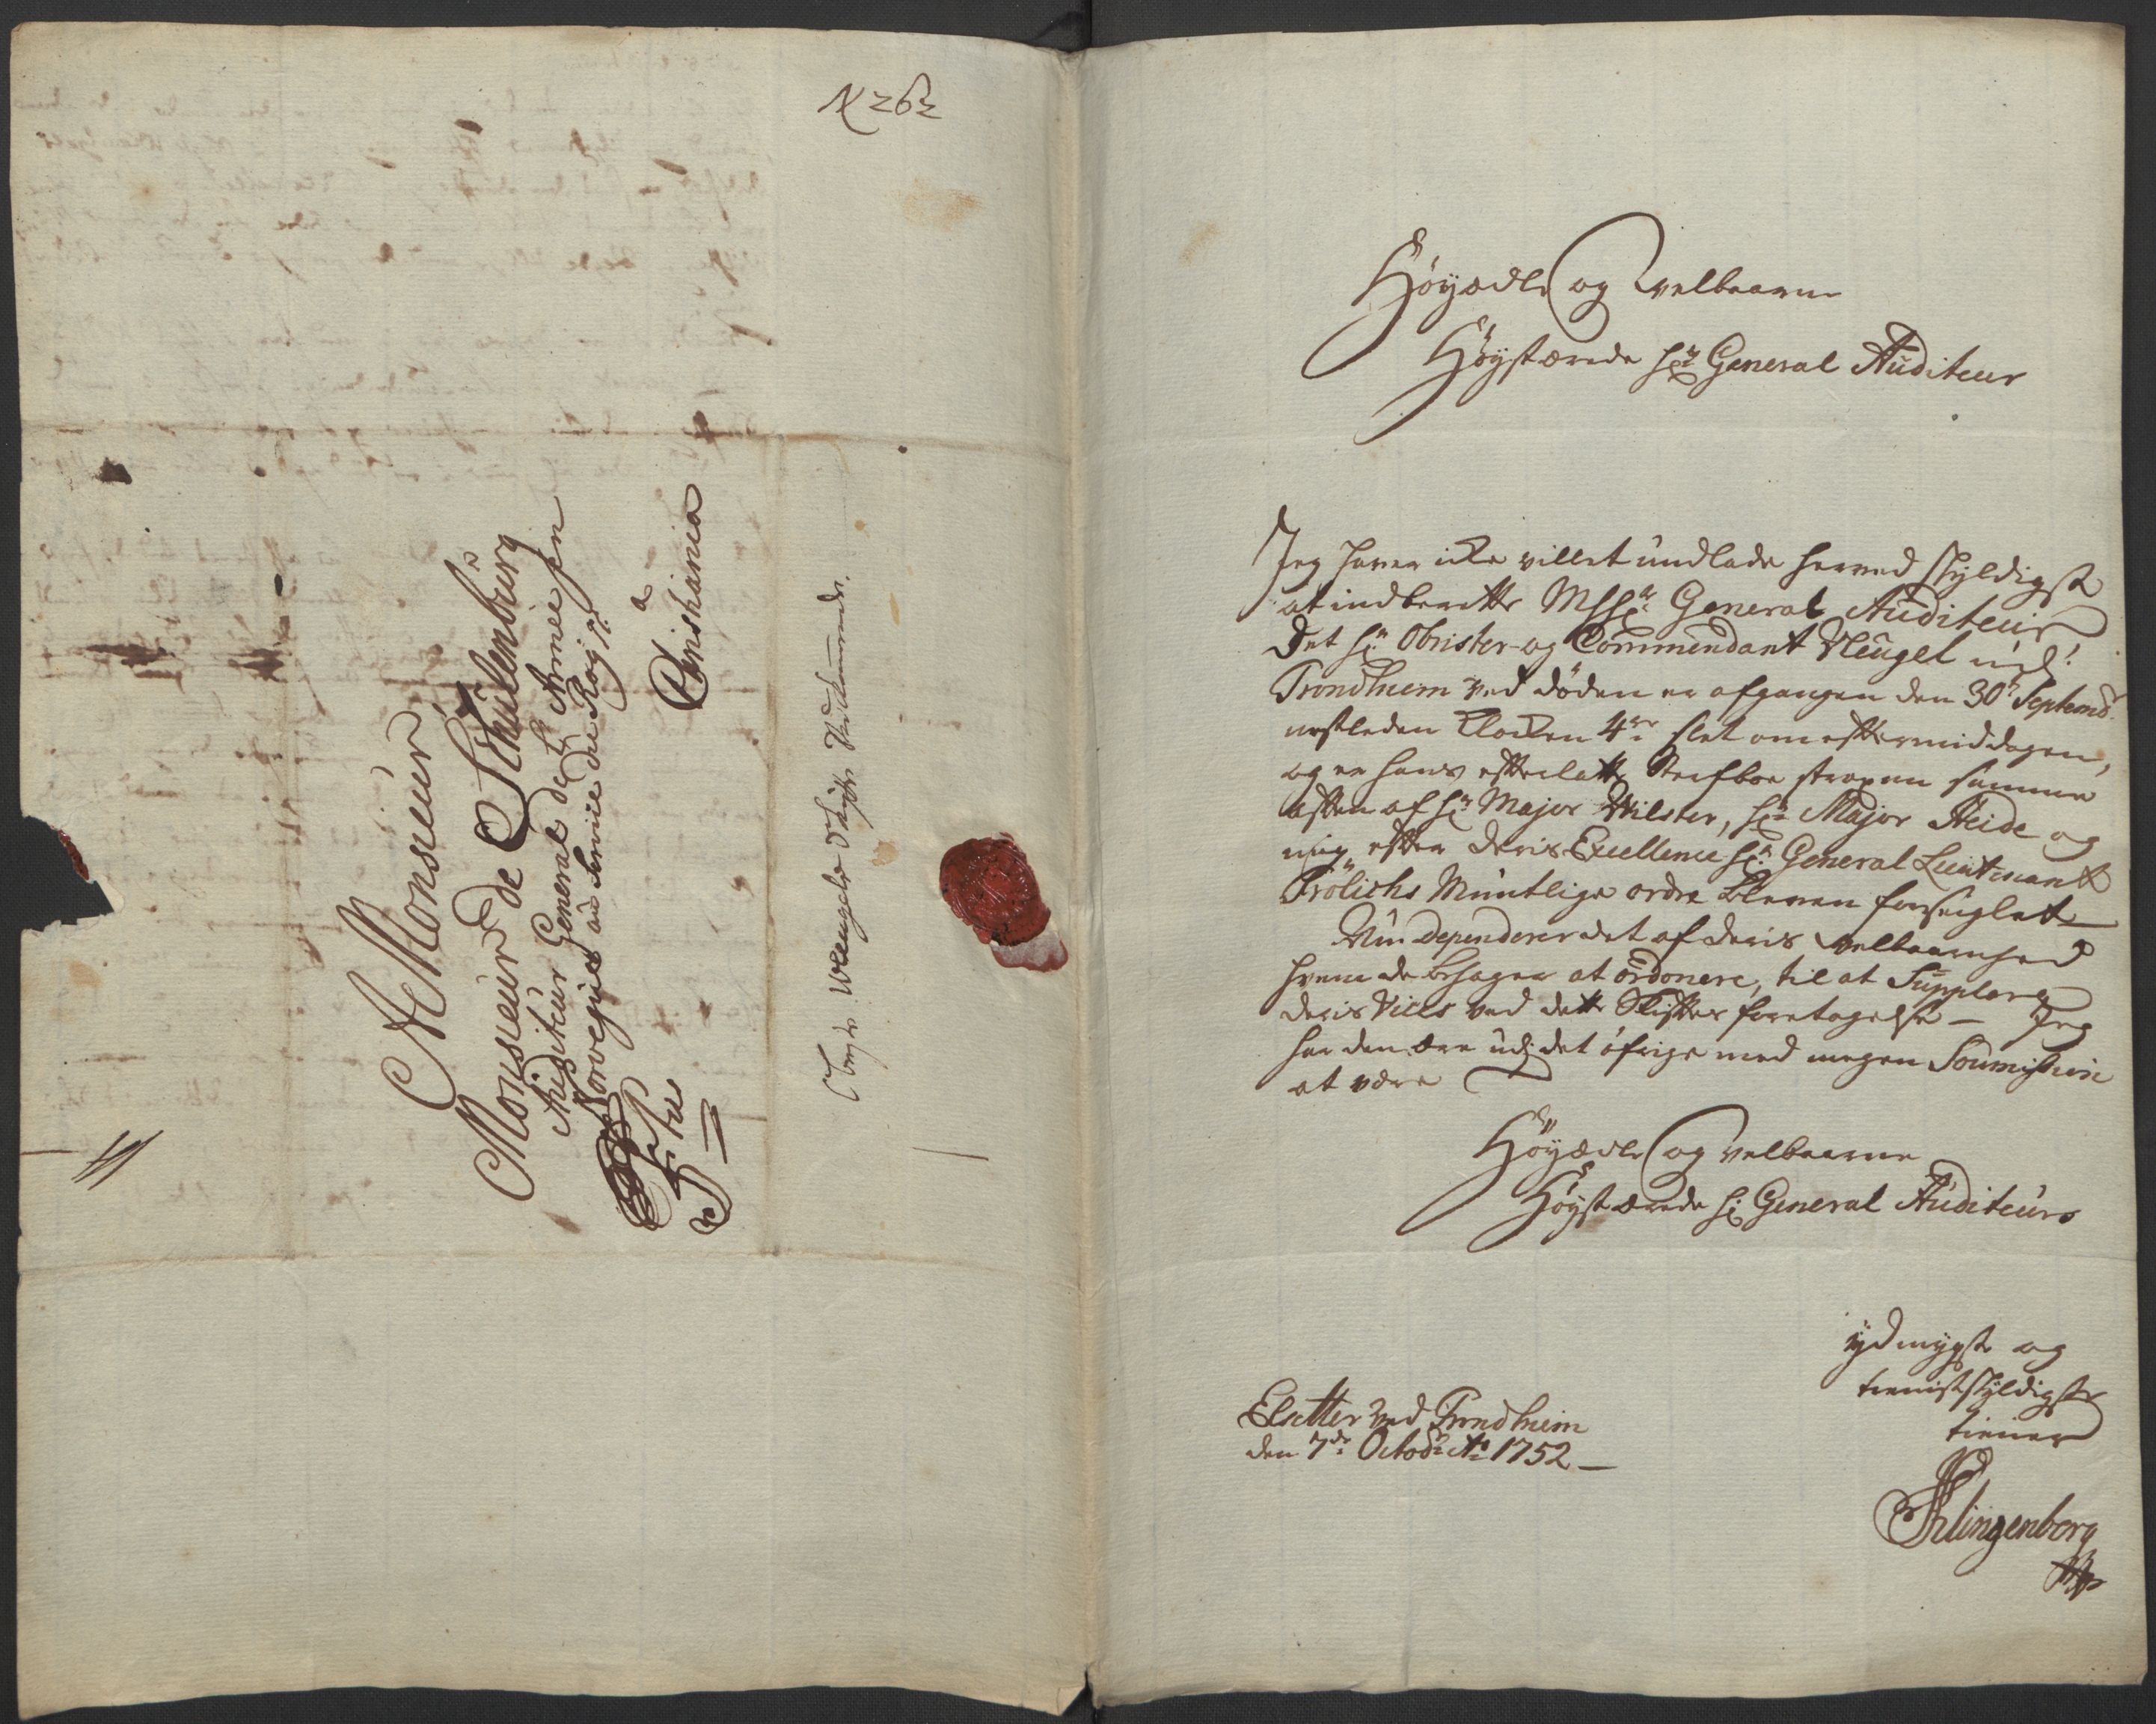 N 262
A Monsieur
Monsieur de Schulenburg
Auditeur General de L'Armée en
Norvegue au Service du Roy p:
a
Christiania
Høyædle og Velbaarne
Høystærede Hr: General Auditeur
Jeg haver icke villet undlade herved skyldigst
at indberette MHHr: General Auditeur
Det Hr: Obrister og Commendant Weugel ud!
Trondhiem ved døden er afgangen den 30te Septembr:
nestleden Klocken 4re slet om eftermiddagen,
og er hans efterlatte Sterfboe strax en samme
aften af Hr: Major Wilster, Hr: Major Heide og
mig efter Deris Excellence Hr: General Lieutenant
Frölichs Muntlige ordre bleven forseiglet
Nu dependerer det af Deris Velbaarenhed
hvem de behager at ordonere, til at Supplere
Deris Vices ved dette Skiftes foretagelse – Jeg
har den ære udj det øfrige med megen Soumission
at være
Høyædle og Velbaarne
Høystærede Hr: General Auditeurs
ydmygste og
tienistskyldigste
tiener
Klingenberg
Elsetter ved Trondhiem
den 7de Octobr: Ao 1752